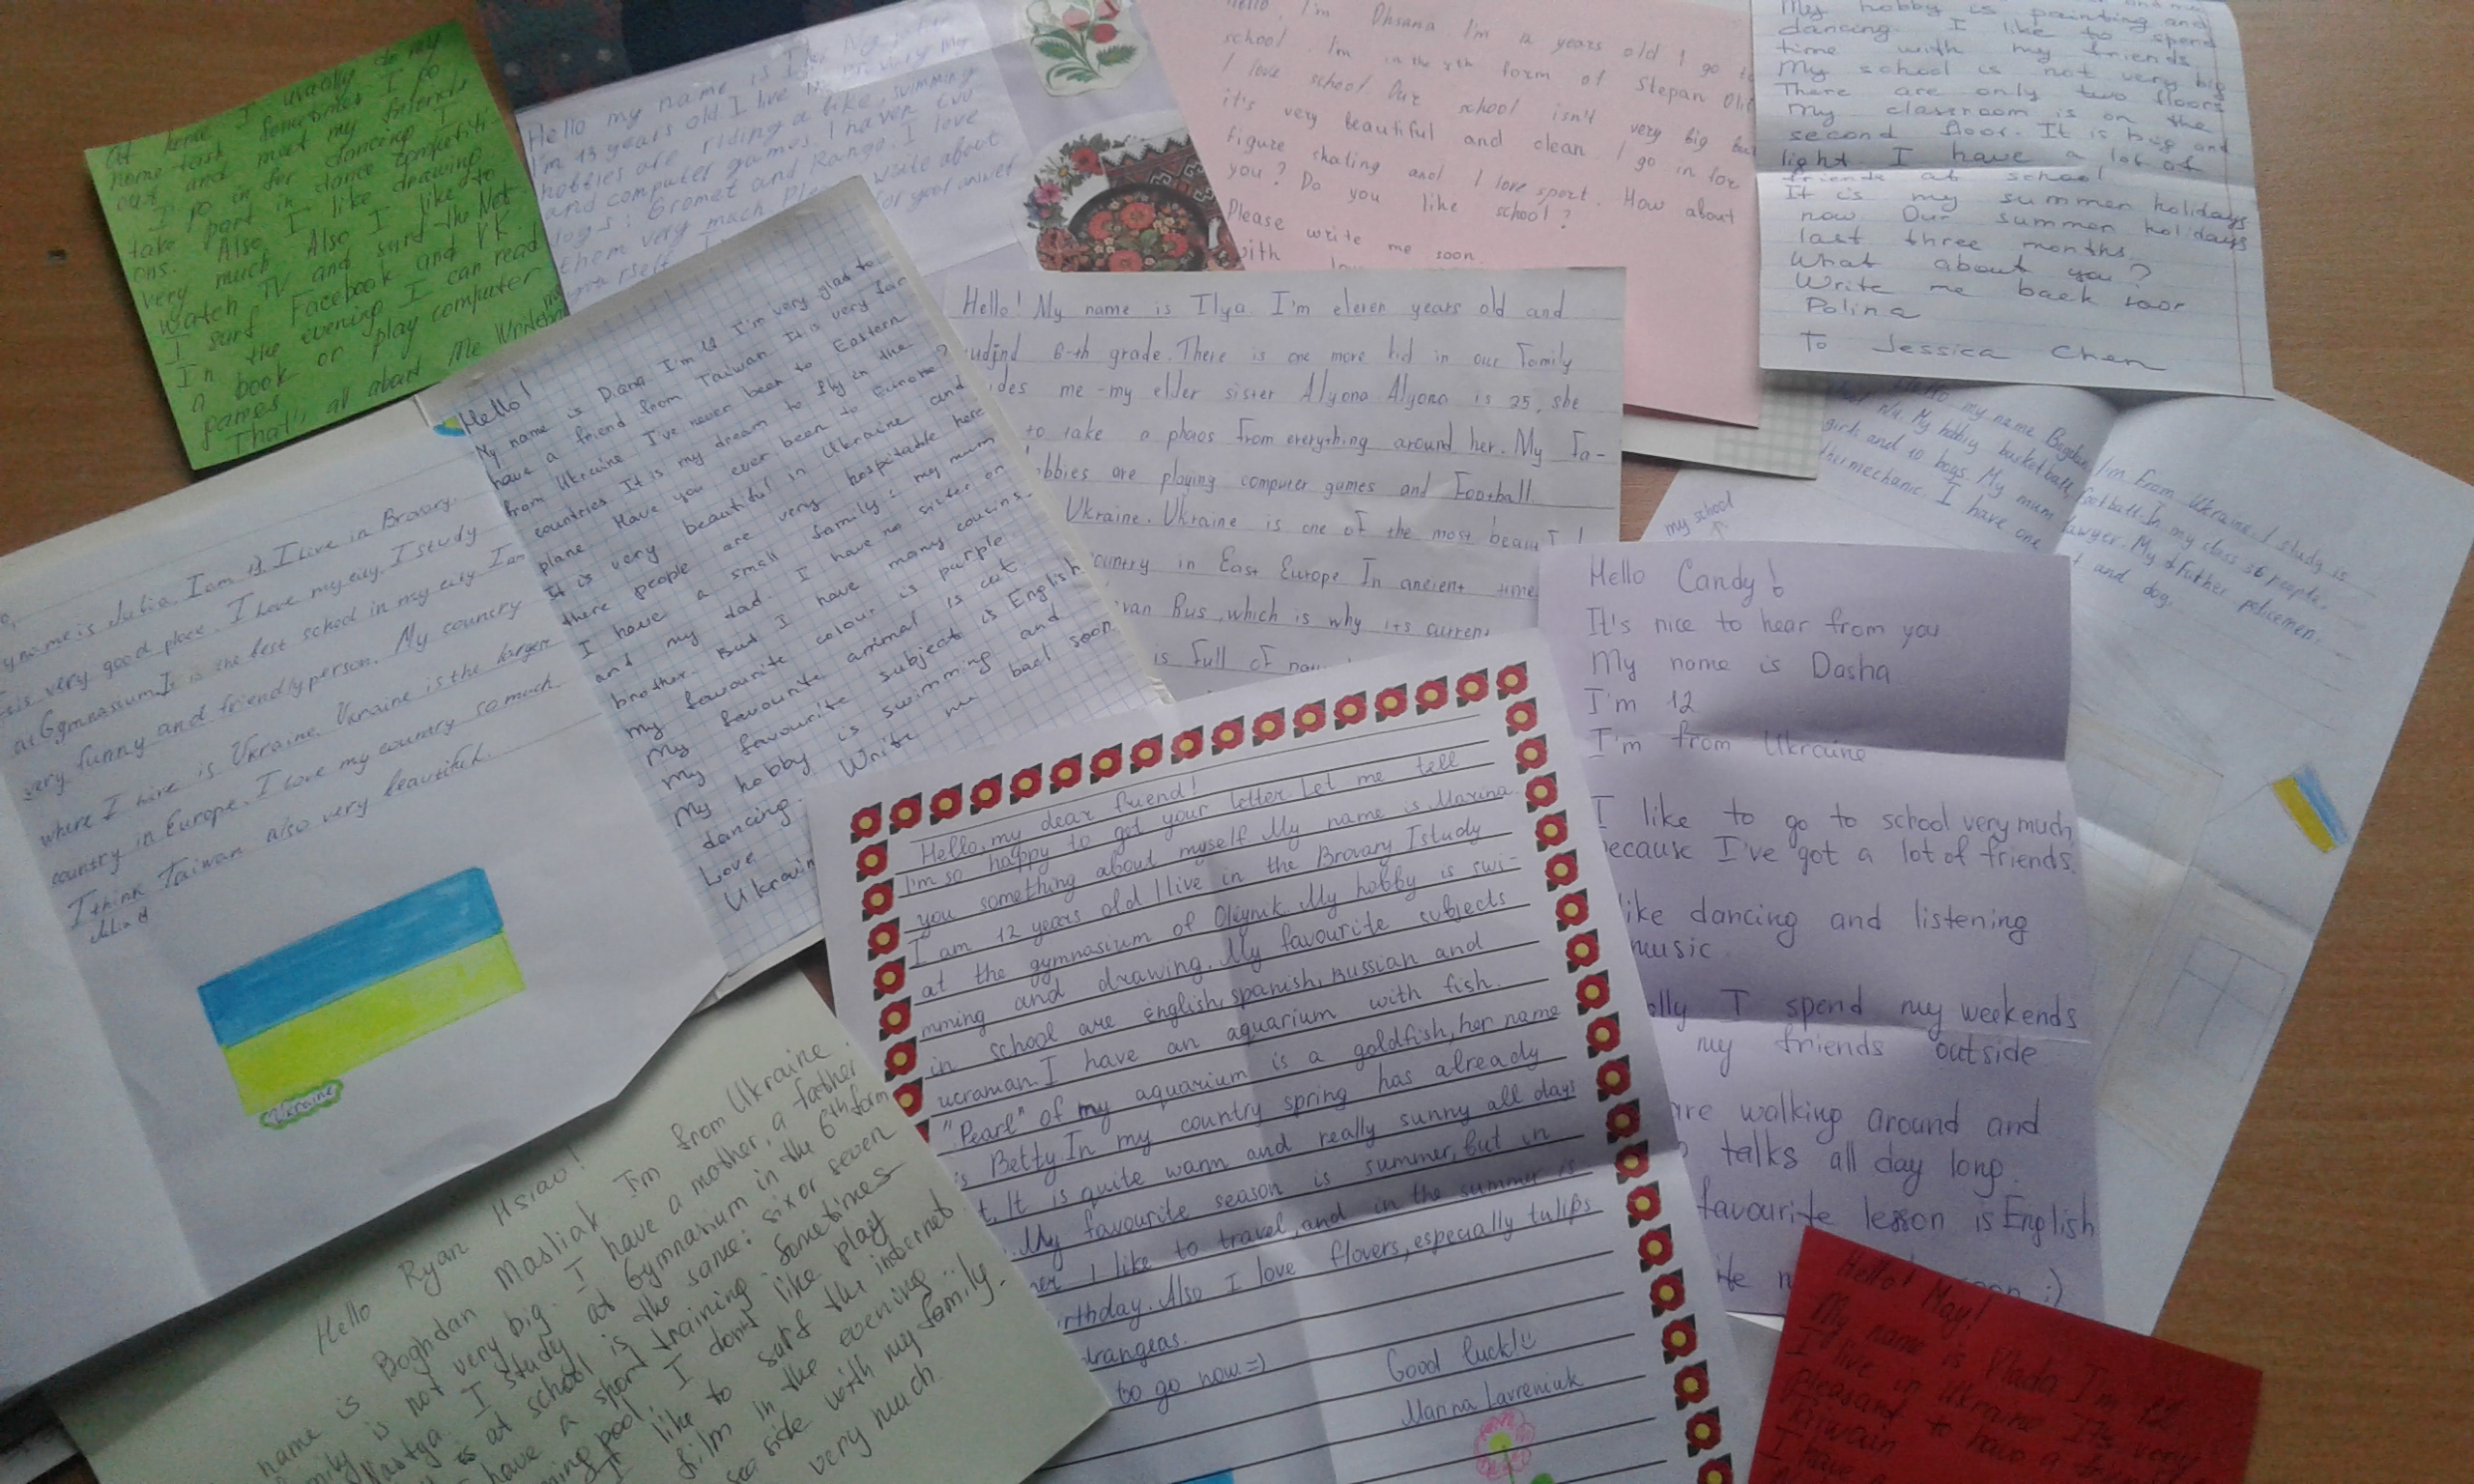 At home I usually do my
home task Sometimes I go
out and meet my friends
I go in for dancing I
take part in dance competiti
ons. Also I like drawing
very much Also I like to
watch TV and surf the Net
I surf Facebook and VK.
In the evening I can read
a book or play computer
games
That's all about me Write
Hello my name is
I'm 13 years old I live in Brovary My
hobbies are riding a bike, swimming
and computer games. I haven
dogs: Gromet and Rango. I love
them very much. Please write about
yourself. for your answer
Hello, I'm Oksana I'm 12 years old I go to
school. I'm in the form of Stepan Olii
I love school. Our school isn't very big but
it's very beautiful and clean. I go in for
figure skating and I love sport. How about
you? Do you like school?
Please write me soon.
with
My hobby is painting and
dancing. I like to spend
time with my friends
My school is not very big
There are only two floors
My classroom is on the
second floor. It is big and
light I have a lot of
friends at school
It is my summer holidays
now Our summer holidays
last three months.
What about you?
Write me back soor
Polina
To Jessica Chen
Hello!
My name is Diana I'm I'm very glad to
have a friend from Taiwan It is very far
from Ukraine I've never been to Eastern
countries It is my dream to fly in the
plane Have you ever been to Europe?
It is very beautiful in Ukraine and
there people are very hospitable here
I have a small family: my mum
and my dad. I have no sister or
brother. But I have many cousins.
My favourite colour is purple
My favourite animal is cat.
My favourite subject is English
My hobby is swimming and
dancing. Write me back soon
Love
Ukrain
Hello! My name is Ilya. I'm eleven years old and
udjnd 6-th grade. There is one more kid in our family
ides me - my elder sister Alyona. Alyona is 25, she
to take a photos from everything around her. My fa-
obbies are playing computer games and Football
Ukraine. Ukraine is one of the most beautif
country in East Europe In ancient time
van Rus, which is why its current
is full of
Hello my name Bogdan I'm from Ukraine. I study is
My hobby basketball, football. In my class 36 people.
girls and 10 boys. My mum lawyer. My father policemen.
mechanic. I have one t and dog.
my school
Hello Candy!
It's nice to hear from you
My name is Dasha
I'm 12
I'm from Ukraine
I like to go to school very much,
because I've got a lot of friends.
like dancing and listening
music.
lly I spend my weekends
my friends outside
are walking around and
talks all day long.
favourite lesson is English
ite :)
y name is Julia. I am I live in Brovary.
is very good place. I love my city. I study
at Gymnasium. It is the best school in my city I am
very funny and friendly person. My country
where I live is Ukraine. Ukraine is the larger
country in Europe. I love my country so much.
I think Taiwan also very beautiful.
Julia
Ukraine
Hello, my dear friend!
I'm so happy to get your letter. Let me tell
you something about myself. My name is Marina.
I am 12 years old I live in the Brovary I study
at the gymnasium of Oleynik. My hobby is swi-
mming and drawing. My favourite subjects
in school are english, spanish, russian and
ucranian. I have an aquarium with fish.
"Pearl" of my aquarium is a goldfish, her name
is Betty. In my country spring has already
t. It is quite warm and really sunny all days
. My favourite season is summer, but in
er I like to travel, and in the summer is
irthday. Also I love flovers, especially tulips
drangeas.
to go now =)
Good luck!
Marina Lavreniuk
Hello Ryan Hsiao!
name is Boghdan Masliak I'm from Ukraine.
mily is not very big. I have a mother, a father
Nastya I study at Gymnasium in the 6th form
at school is the same: six or seven
have a sport training Sometimes
ming pool. I dont like play
I like to surf the internet
film in the evening
sea side with my family.
very much
Hello! May!
My name is Vlada I'm 12
I live in Ukraine It's very
pleasant to have a
I have